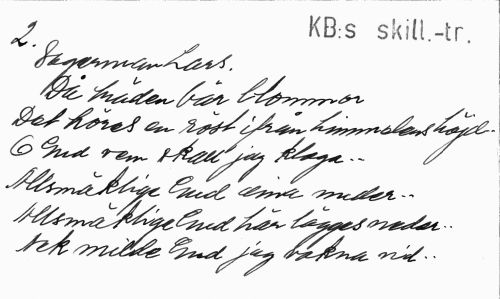 KB:s skill.-tr.
2.
Sagerman Lars.
Då träden bär blommor
Det höres en röst ifrån himmelens höjd..
O Gud vem skall jag klaga..
Allsmäktige Gud neder..
Allsmäktige Gud här lägges neder..
Ack milde Gud jag vakna vid..